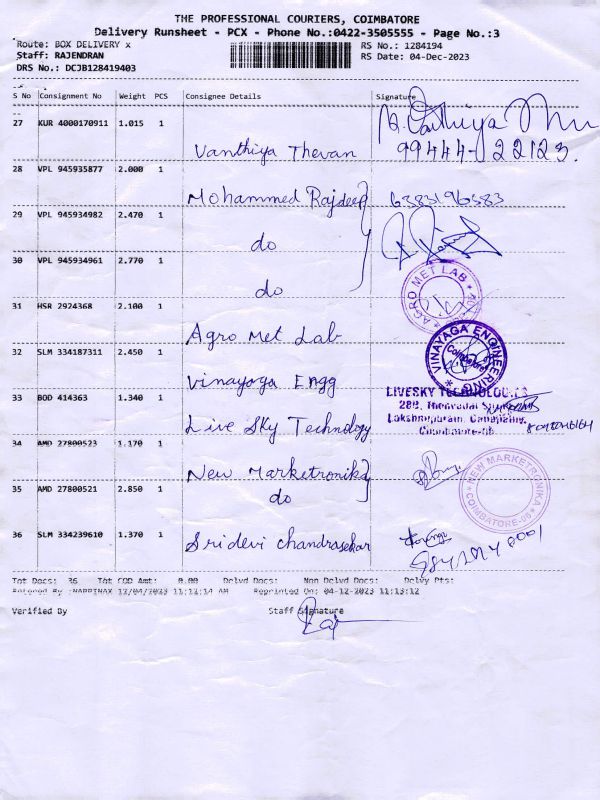 THE PROFESSIONAL COURIERS, COIMBATORE
Delivery Runsheet - PCX - Phone No.:0422-3505555 - Page No.:3
Route: BOX DELIVERY x RS No.: 1284194
Staff: RAJENDRAN RS Date: 04-Dec-2023
DRS No.: DCJB128419403
S No Consignment No Weight PCS Consignee Details Signature
27 KUR 4000170911 1.015 1
Vanthiya Thevan 99444-22123.
28 VPL 945935877 2.000 1
Mohammed Rajdeep
29 VPL 945934982 2.470 1
do
30 VPL 945934961 2.770 1
do
AGRO MET LAB
31 HSR 2924368 2.100 1
Agro Met Lab
32 SLM 334187311 2.450 1
VINAYAGA ENGINEERING
Coimbatore
Vinayaga Engg
33 BOD 414363 1.340 1
LIVESKY TECHNOLOGIES
Live Sky Technology
Coimbatore-06
34 AMD 27800523 1.170 1
New Marketronika
35 AMD 27800521 2.850 1
do
NEW MARKETRONIKA
COIMBATORE-06
36 SLM 334239610 1.370 1
Sridevi Chandrasekar
Tot Docs: 36 Tot COD Amt: 0.00 Delvd Docs: Non Delvd Docs: Delvy Pts:
12/04/2023 11:12:14 AM Reprinted On: 04-12-2023 11:13:12
Verified By Staff Signature